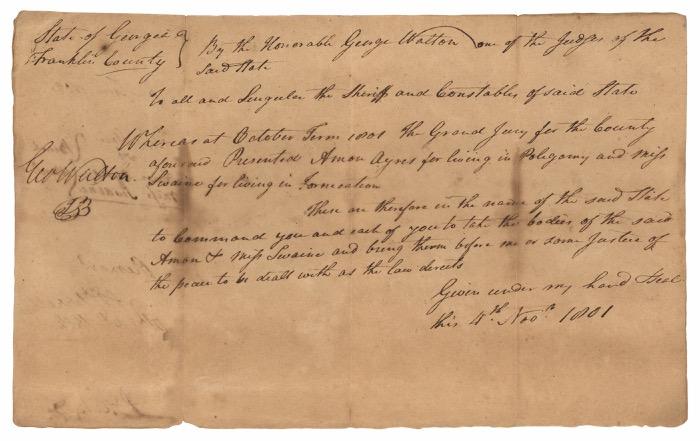 State of Georgia
Franklin County
By the Honorable George Walton one of the Judges of the
said State
To all and Singular the Sheriff and Constables of said State
Whereas at October Term 1801 The Grand Jury for the County
aforesaid Presented Amon Ayres for living in Poligomy and miss
Swaine for living in Fornication
Geo Walton
These are therefore in the name of the said State
to Command you and each of you to take the bodies of the said
Amon & miss Swaine and bring them before me or some Justice of
the peace to be dealt with as the law derects
Given under my hand & Seal
this 4th Novr 1801